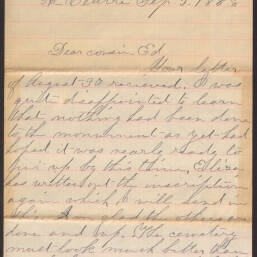 McClure Sep 5. 1886
Dear cousin Ed
Your letter
of August 30 recieved. I was
quit disappointed to learn
that nothing had been done
to the monument as yet had
hoped it was nearly ready to
put up by this time, Eliza
has written out the inscription
again which I will send in
this. I glad the others are
done and up. The cemetery
must look much better than